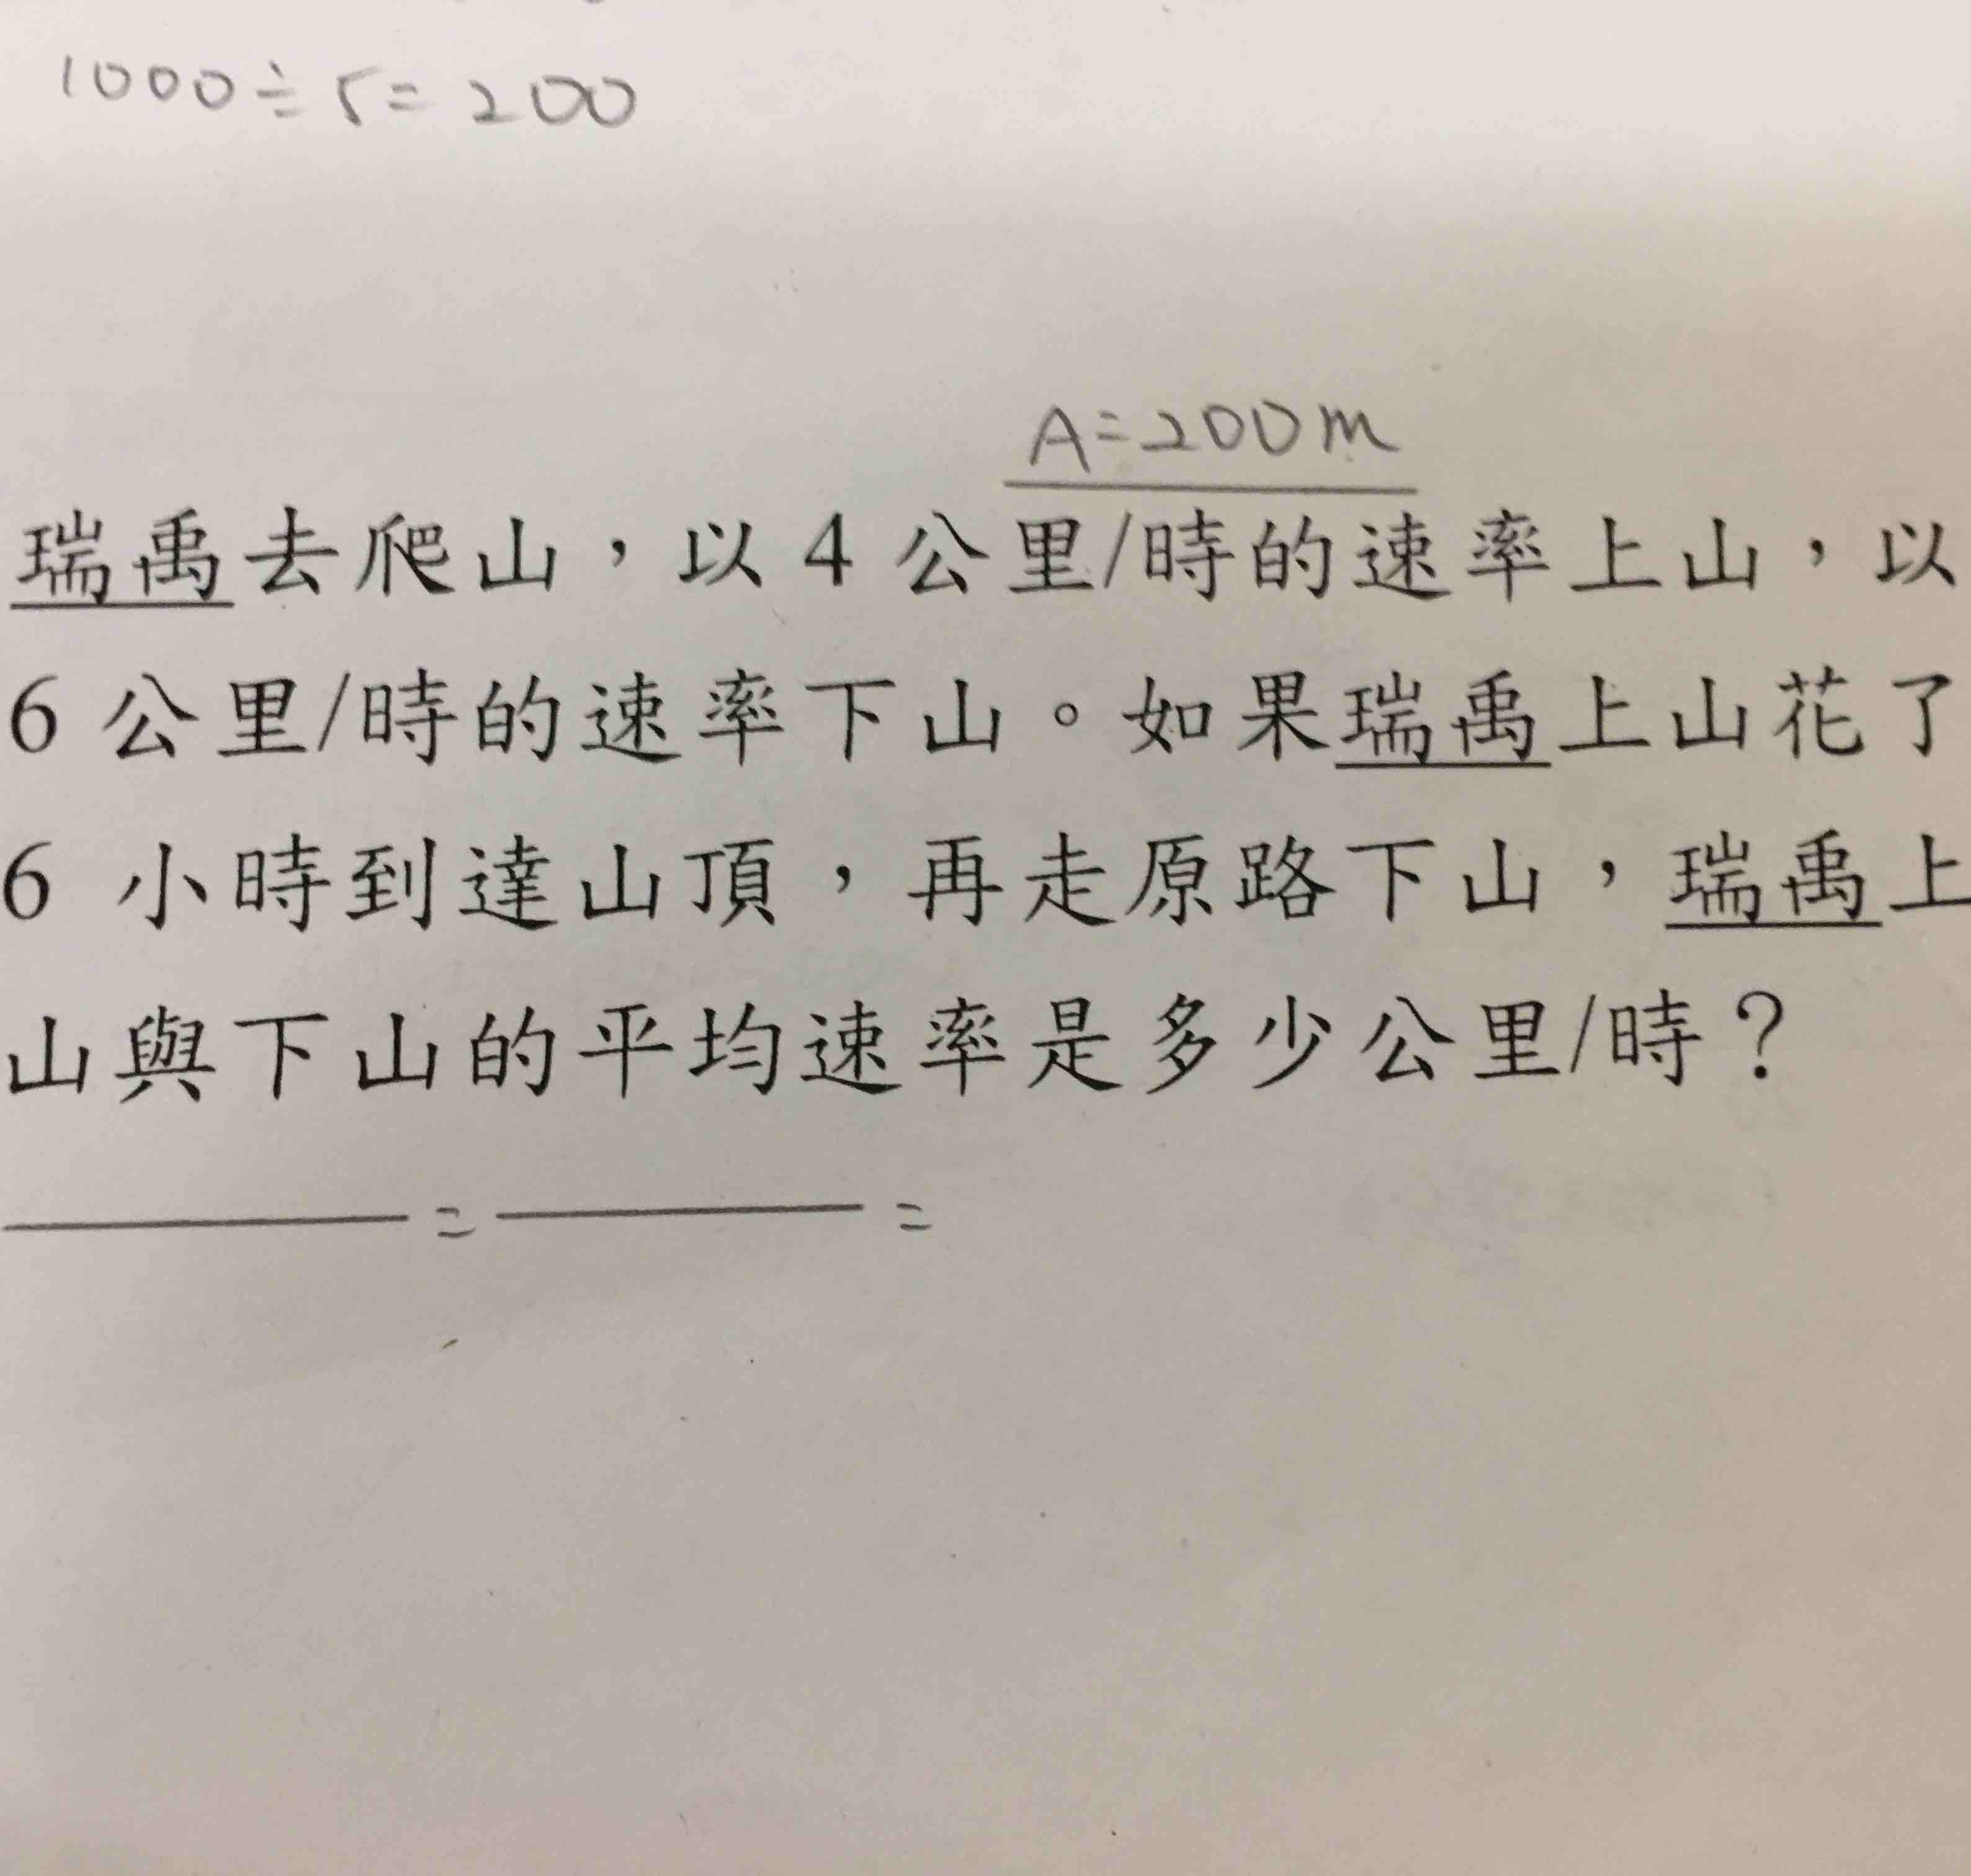 1000÷5=200
A=200m
瑞禹去爬山，以 4 公里/時的速率上山，以
6 公里/時的速率下山。如果瑞禹上山花了
6 小時到達山頂，再走原路下山，瑞禹上
山與下山的平均速率是多少公里/時？
= =